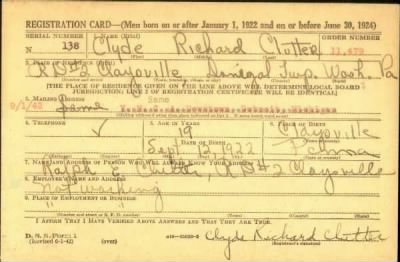 REGISTRATION CARD—(Men born on or after January 1, 1922 and on or before June 30, 1924)
SERIAL NUMBER 1. NAME (Print) ORDER NUMBER
N 138 Clyde Richard Clutter 11,479
2. PLACE OF RESIDENCE (Print)
RD#2 Claysville Donegal Twp. Wash. Pa
[THE PLACE OF RESIDENCE GIVEN ON THE LINE ABOVE WILL DETERMINE LOCAL BOARD
JURISDICTION; LINE 2 OF REGISTRATION CERTIFICATE WILL BE IDENTICAL]
3. MAILING ADDRESS
Same
9/1/42 Same Detroit, Michigan
4. TELEPHONE 5. AGE IN YEARS 6. PLACE OF BIRTH
19 Claysville
DATE OF BIRTH
Sept 1922 Penna
7. NAME AND ADDRESS OF PERSON WHO WILL ALWAYS KNOW YOUR ADDRESS
Ralph E. Clutter, RD#2 Claysville
8. EMPLOYER'S NAME AND ADDRESS
Not working
9. PLACE OF EMPLOYMENT OR BUSINESS
" "
I AFFIRM THAT I HAVE VERIFIED ABOVE ANSWERS AND THAT THEY ARE TRUE.
D. S. S. Form 1
(Revised 6-1-42) (over) Clyde Richard Clutter
(Registrant's signature)